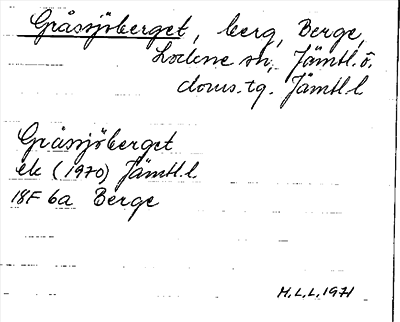 Gråssjöberget, berg, Berge,
Lockne sn, Jämtl. ö.
doms.tg. Jämtl. l
Gråssjöberget
ek (1970) Jämtl. l
18F 6a Berge
H.L.L. 1971